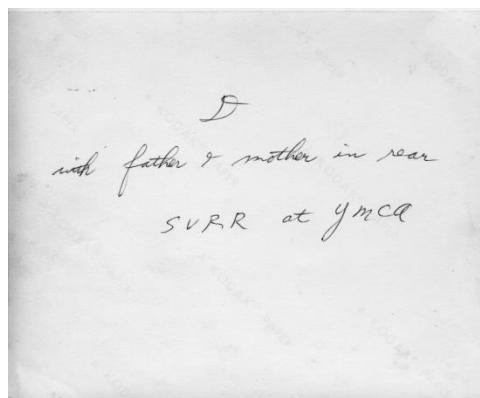 D
with father & mother in rear
SVRR at YMCA